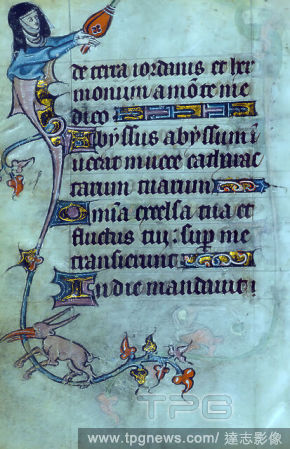 de terra iordanis et her
monium a mōte mo
dico
Abyssus abyssum ī
uocat in uoce catharac
tarum tuarum
Omīa excelsa tua et
fluctus tui: sup me
transierunt
In die mandauit
TPG
www.tpgnews.com/ 達志影像